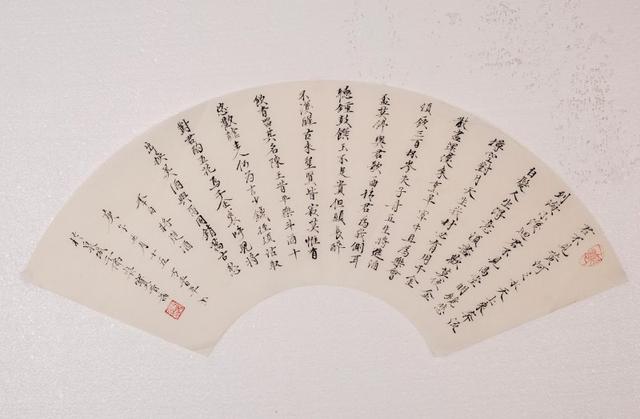 君不見黃河之水天上來奔流
到海不復回君不見高堂明鏡悲
白髮人生得意須盡歡莫使金
樽空對月天生我材必有用千金
散盡還復來烹羊宰牛且為樂會
須飲三百杯岑夫子丹丘生將進酒
盃莫停與君歌一曲請君為我側耳
聽鐘鼓饌玉不足貴但願長醉
不復醒古來聖賢皆寂寞惟有
飲者留其名陳王昔平樂斗酒十
恣歡謔主人何為言少錢徑須沽取
對君酌五花馬千金裘呼兒將
出換美酒與爾同銷萬古愁
李白將進酒
庚子 月十五